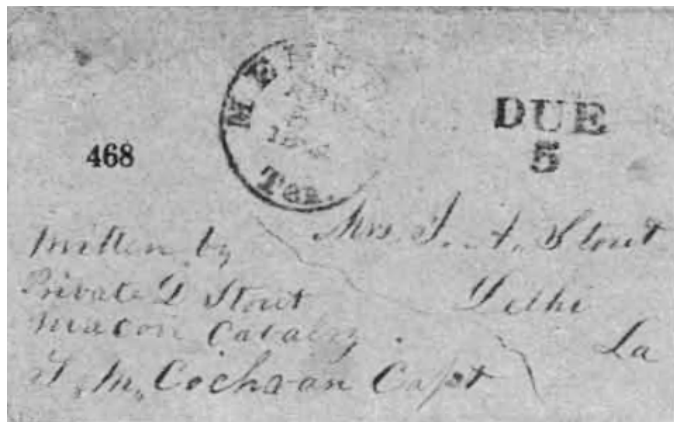 MEMPHIS
APR
Ten.
DUE
5
468
Mrs. S. A. Stout
Delhi
La
Written by
Private D Stout
Macon Cavalry.
T. M. Cochran Capt